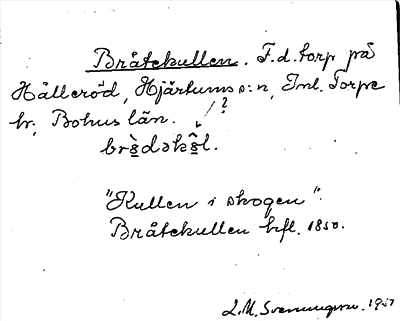 Bråtekullen. F.d. torp på
Hälleröd, Hjärtums s:n, Inl. Torpe
hr, Bohus län. ?
"Kullen i skogen".
Bråtekullen hfl. 1850.
L.M. Svenungsson. 1927